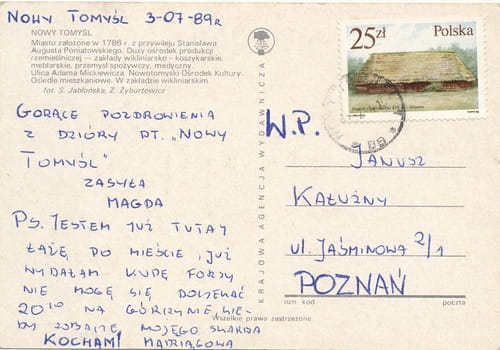 NOWY TOMYŚL 3-07-89r
NOWY TOMYŚL
Miasto założone w 1786 r. z przywileju Stanisława
Augusta Poniatowskiego. Duży ośrodek produkcji
rzemieślniczej — zakłady wikliniarsko - koszykarskie,
meblarskie, przemysł spożywczy, medyczny
Ulica Adama Mickiewicza. Nowotomyski Ośrodek Kultury
Osiedle mieszkaniowe. W zakładzie wikliniarskim
fot. S. Jabłońska, Z. Żyburtowicz
GORĄCE POZDROWIENIA
Z DZIÓRY PT. „NOWY
TOMYŚL"
ZASYŁA
MAGDA
PS. JESTEM JUŻ TUTAJ
ŁAŻĘ PO MIEŚCIE, JUŻ
WYDAŁAM KUPĘ FORSY
NIE MOGĘ SIĘ DOCZEKAĆ
KOCHAM!
KRAJOWA AGENCJA WYDAWNICZA
Wszelkie prawa zastrzeżone.
25zł Polska
W.P.
JANUSZ
KAŁUŻNY
ul. JAŚMINOWA 2/1
POZNAŃ
ozn. kod poczta